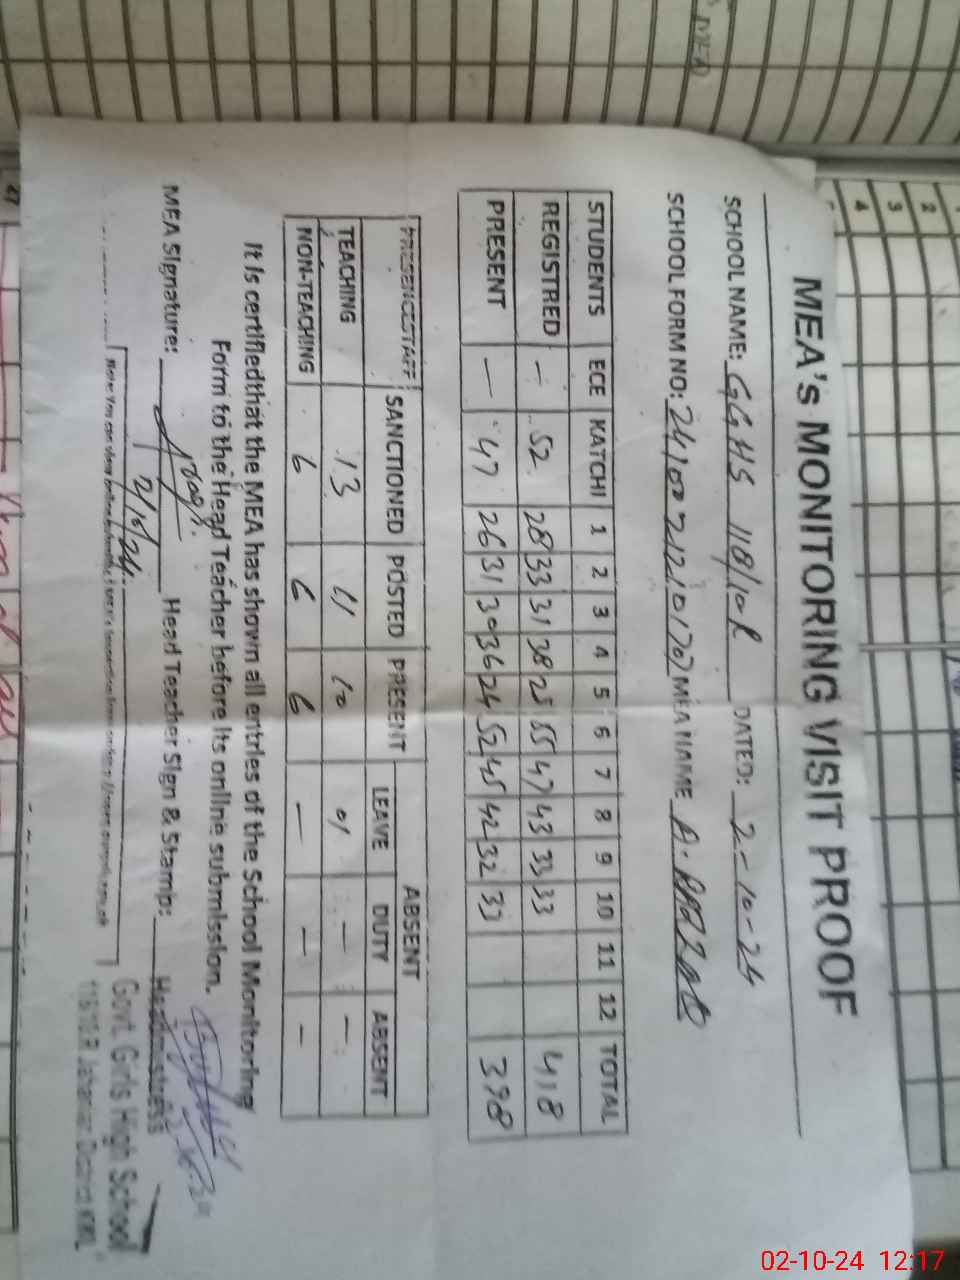 MEA's MONITORING VISIT PROOF
SCHOOL NAME: GGHS 118/10R DATED: 2-10-24
SCHOOL FORM NO: MEA NAME
STUDENTS ECE KATCHI 1 2 3 4 5 6 7 8 9 10 11 12 TOTAL
REGISTRED — 52 28 33 31 38 25 55 47 43 33 33 418
PRESENT — 47 26 31 30 36 24 52 45 42 32 33 398
PRESENCESTAFF SANCTIONED POSTED PRESENT ABSENT
LEAVE DUTY ABSENT
TEACHING 13 11 10 01 — —
NON-TEACHING 6 6 6 — — —
It is certifiedthat the MEA has shown all entries of the School Monitoring
Form to the Head Teacher before its online submission.
MEA Signature: Head Teacher Sign & Stamp:
2/10/24
Headmistress
Govt. Girls High School
118/10.R Jahanian District KWL
MEA
2
3
4
47
02-10-24 12:17